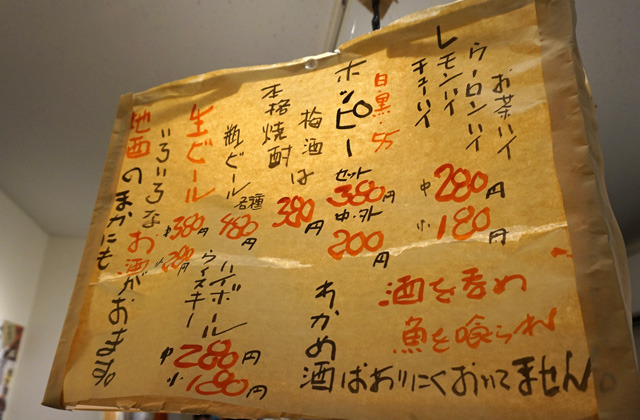 お茶ハイ
ウーロンハイ
レモンハイ
チューハイ
中280円
小180円
ホッピー
白・黒・55
セット
380円
中・外
200円
梅酒は
本格焼酎
380円
瓶ビール
各種
480円
生ビール
中380円
小290円
ハイボール
ウイスキー
中280円
小180円
いろいろなお酒がおます。
地酒のほかにも
酒を呑め
魚を喰られ
わかめ酒はおりにくおいてません。